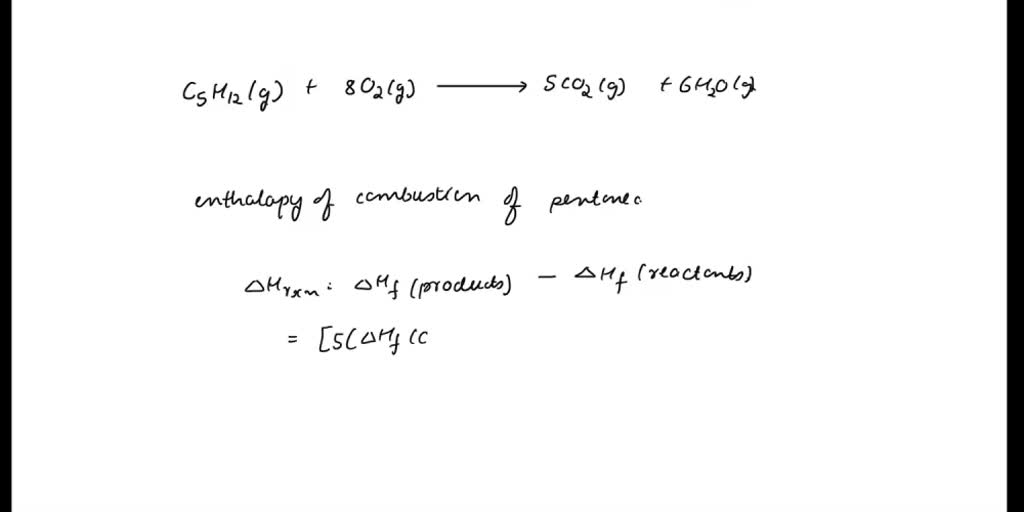 C5H12(g) + 8O2(g) ⟶ 5CO2(g) + 6H2O(g)
enthalapy of combustion of pentane
ΔHrxn: ΔHf (products) − ΔHf (reactants)
= [5(ΔHf (C